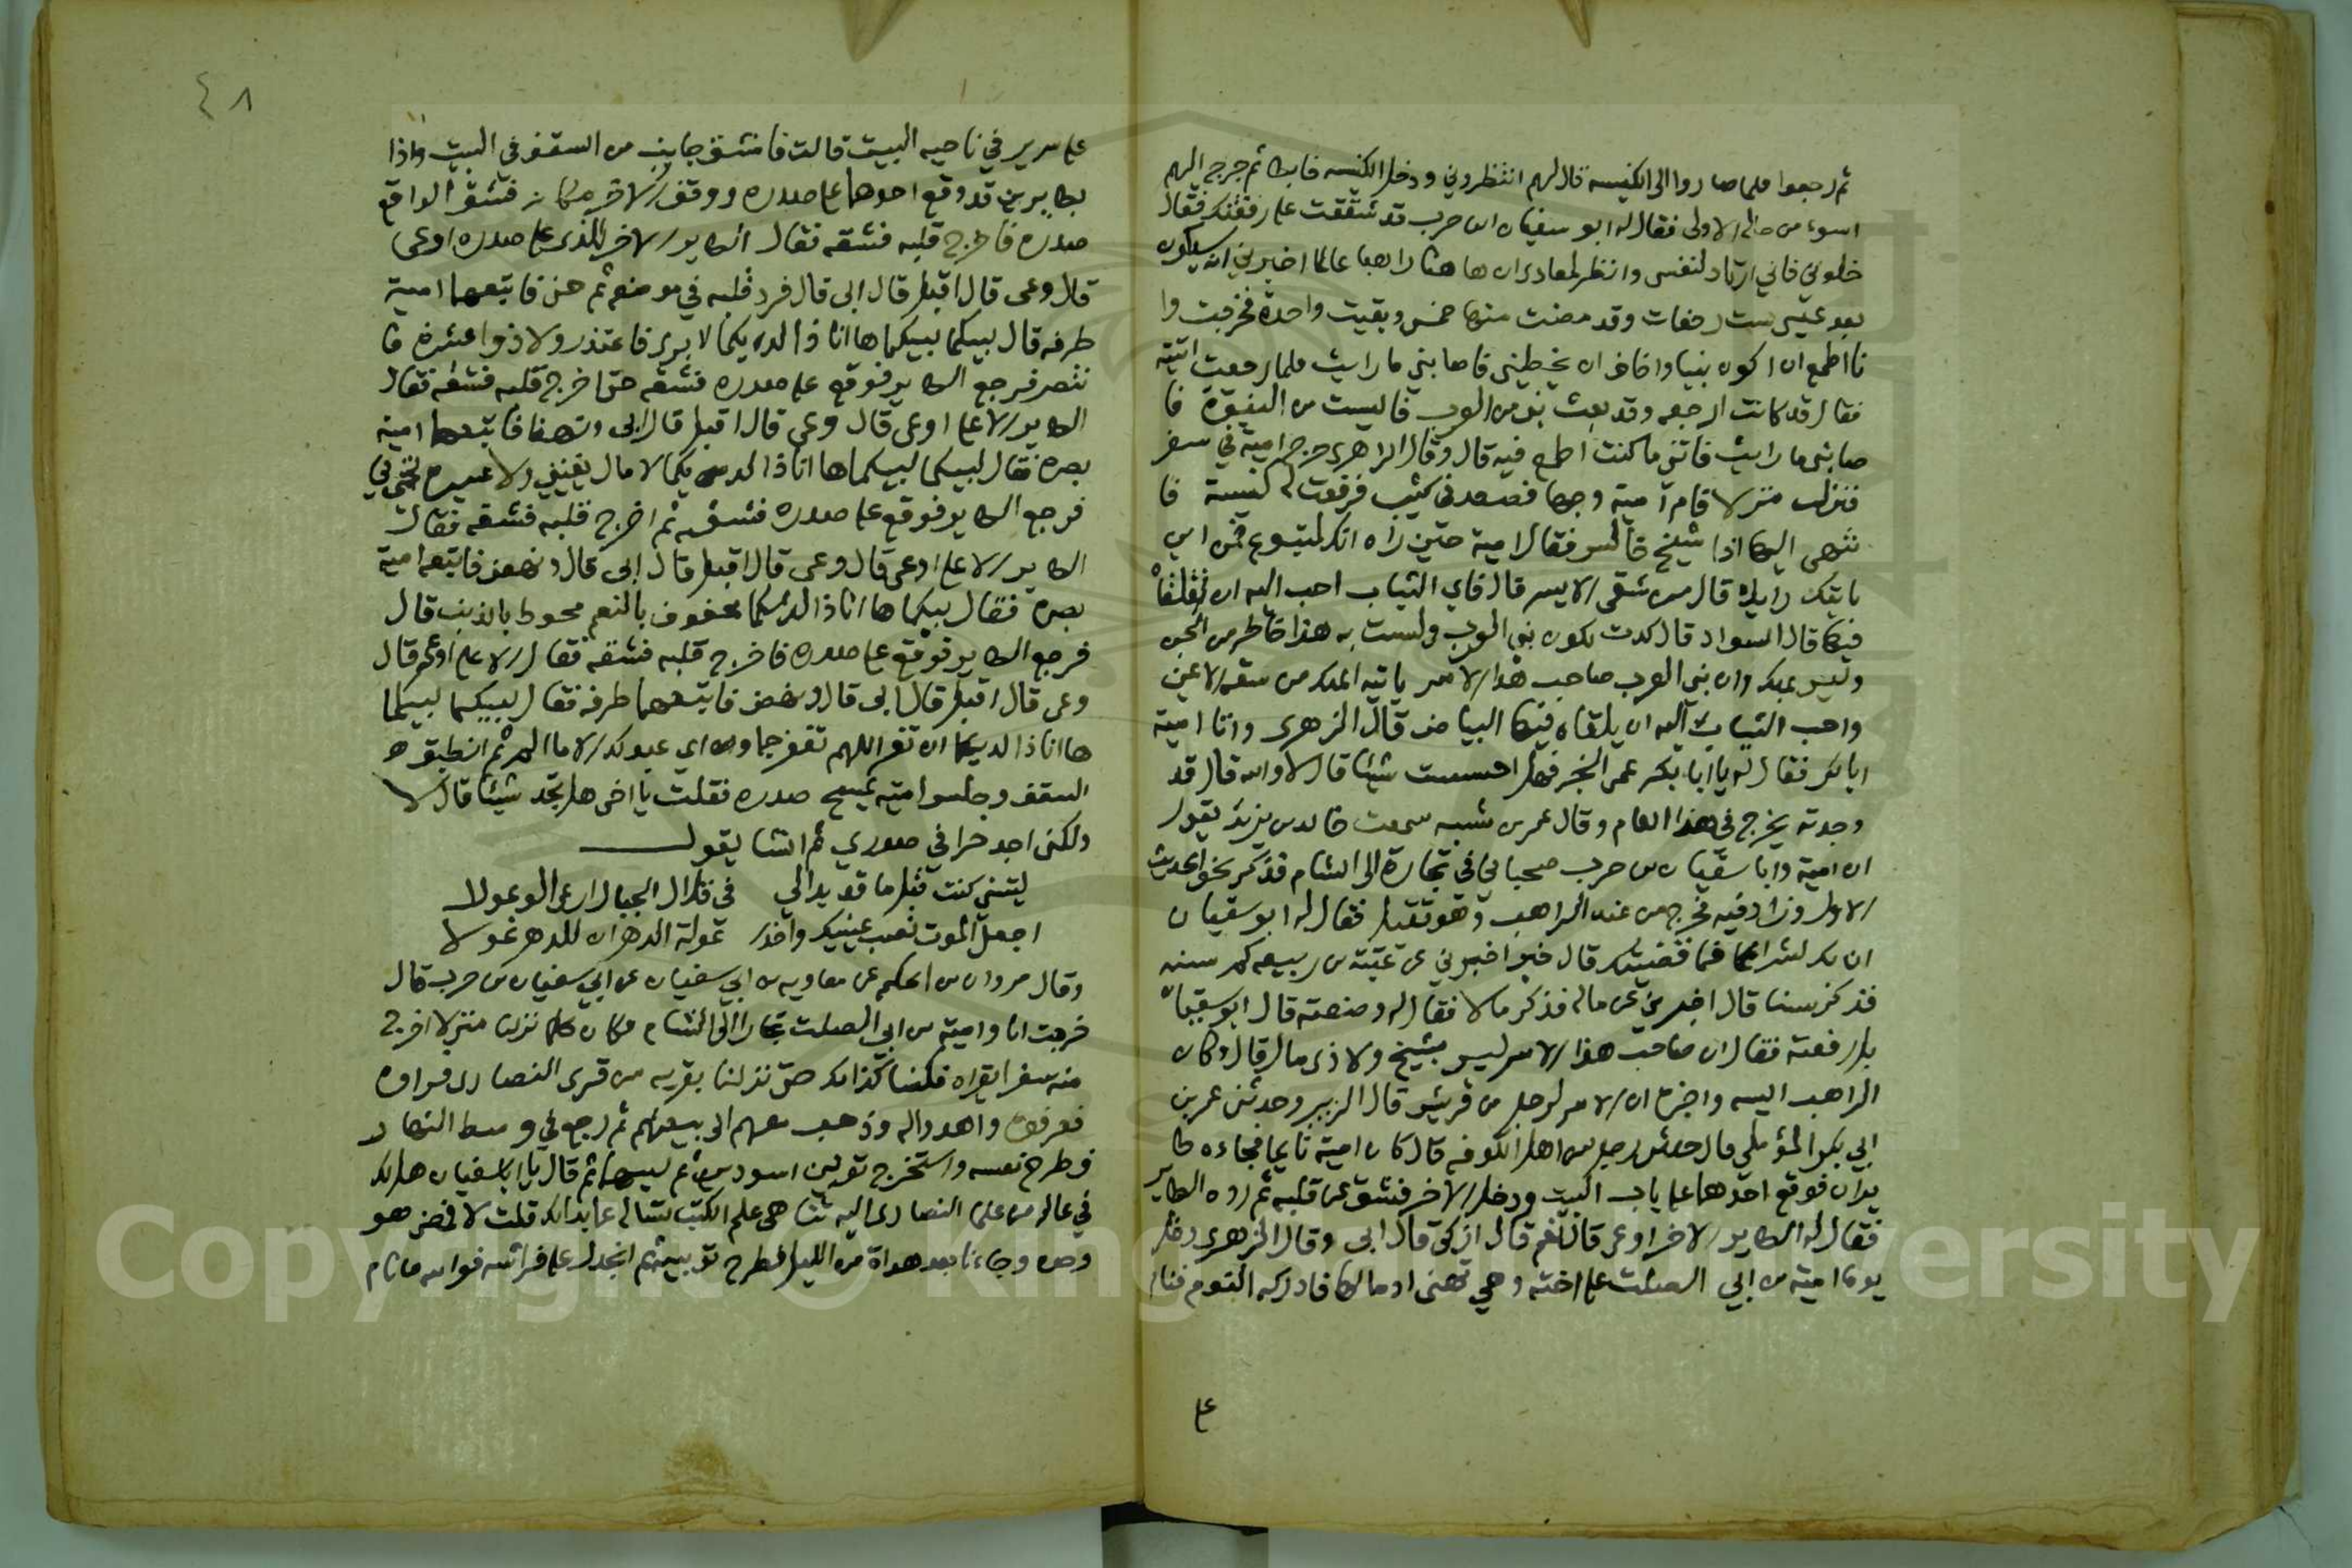 ثم رجعوا فلما صاروا الى الكنيسه قال لهم انتظروني ودخل الكنيسه فابطا ثم خرج اليهم
اسوء من حاله الاولى فقال له ابو سفيان ابن حرب قد شققت على رفقتك فقال
خلوني فاني ارتاد لنفسي وانظر لمعادي ان ها هنا راهبا عالما اخبرني انه سيكون
بعد عيسى ست رجفات وقد مضت منها خمس وبقيت واحدة فخرجت وا
نا اطمع ان اكون نبيا واخاف ان يخطيني فاصابني ما رايت فلما رجعت اتيته
فقال قد كانت الرجعه وقد بعث نبي من العرب فايست من النبوة فا
صابني ما رايت فاتني ما كنت اطمع فيه قال وقال الزاهري خرج امية في سفر
فنزلت منزلا قام امية وجها فصعد في كثيب فرفعت له كنيسة فا
نتهى اليها اذا شيخ جالس فقال امية حين راه انك لمتبوع فمن اين
ياتيك رايك قال من شقي الايسر قال فاي الثياب احب اليه ان تلقاه
فيها قال السواد قال كدت تكون نبي العرب ولست به هذا خاطر من الجن
وليس بملك وان نبي العرب صاحب هذا الامر ياتيه الملك من شقه الايمن
واحب الثياب اليه ان يلقاه فيها البياض قال الزهرى واتا امية
ابا بكر فقال له يا ابا بكر عمى الخبر فهل احسست شيئا قال لا والله قال قد
وجدته يخرج في هذا العام وقال عمر بن شبه سمعت خالد بن يزيد يقول
ان امية وابا سفيان بن حرب صحباني في تجارة الى الشام فذكر نحو الحديث
الاول وزاد فيه فخرج من عند الراهب وهو ثقيل فقال له ابو سفيان
ان بك لشرا فما قضيتك قال خير اخبرني عن عتبة بن ربيعه كم سنه
فذكر سنا قال اخبرني عن ماله فذكر مالا فقال له وضعته قال ابو سفيان
بل رفعته فقال ان صاحب هذا الامر ليس بشيخ ولا ذي مال قال وكان
الراهب ايسه واخبره ان الامر لرجل من قريش قال الزبير وحدثني عمر بن
ابي بكر المؤملي قال حدثني رجل من اهل الكوفه قال كان امية نايما فجاءه طا
يران فوقع احدهما على باب البيت ودخل الاخر فشق عن قلبه ثم رده الطاير
فقال له الطاير الاخر اوعى قال نعم قال ازكى قال ابى وقال الزهرى دخل
يوما امية بن ابي الصلت على اخته وهي تهنى ادما لها فادركه النوم فنام
على
٤٨
على سرير في ناحيه البيت قالت فانشق جانب من السقف في البيت واذا
بطايرين قد وقع احدهما على صدره ووقف الاخر مكانه فشق الواقع
صدره فاخرج قلبه فشقه فقال الطاير الاخر للذي على صدره اوعى
قال وعى قال اقبل قال ابى قال فرد قلبه في موضعه ثم نهض فاتبعهما امية
طرفه قال لبيكما لبيكما ها انا ذا لديكما لا بري فاعتذر ولا ذوا عشيرة فا
نتصر فرجع الطاير فوقع على صدره فشقه حتى اخرج قلبه فشقه فقال
الطاير الاعلى اوعى قال وعى قال اقبل قال ابى ونهضا فاتبعهما امية
بصره فقال لبيكما لبيكما ها انا ذا لديكما لا مال يغنيني ولا عشيرة تحميني
فرجع الطاير فوقع على صدره فشقه ثم اخرج قلبه فشقه فقال
الطاير الاعلى اوعى قال وعى قال اقبل قال ابى قال ونهض فاتبعه امية
بصره فقال لبيكما ها انا ذا لديكما محفوف بالنعم محوط بالذنب قال
فرجع الطاير فوقع على صدره فاخرج قلبه فشقه فقال الاعلى اوعى قال
وعى قال اقبل قال ابى قال ونهض فاتبعهما طرفه فقال لبيكما لبيكما
ها انا ذا لديكما ان تغفر اللهم تغفر جما واي عبد لك لا الما ثم انطبق
السقف وجلس امية يمسح صدره فقلت يا اخي هل تجد شيئا قال لا
ولكني اجد حرا في صدري ثم انشا يقول
ليتني كنت قبل ما قد بدا لي في قلال الجبال ارعى الوعولا
اجعل الموت نصب عينيك واحذر غولة الدهر ان للدهر غولا
وقال مروان بن الحكم عن معاويه بن ابي سفيان عن ابي سفيان بن حرب قال
خرجت انا وامية بن ابي الصلت تجارا الى الشام فكان كلما نزلنا منزلا اخرج
منه سفرا يقراه فكنا كذلك حتى نزلنا بقريه من قرى النصارى فراوه
فعرفوه واهدوا له وذهب معهم الى بيعتهم ثم رجع في وسط النهار
فطرح نفسه واستخرج ثوبين اسودين ثم لبسهما ثم قال يا ابا سفيان هل لك
في عالم من علما النصارى اليه تناهى علم الكتب تساله عما بدا لك قلت لا فمضى هو
وحده وجاءنا بعد هداة من الليل فطرح ثوبيه ثم انجدل على فراشه فوالله ما نام
Copyright © King University